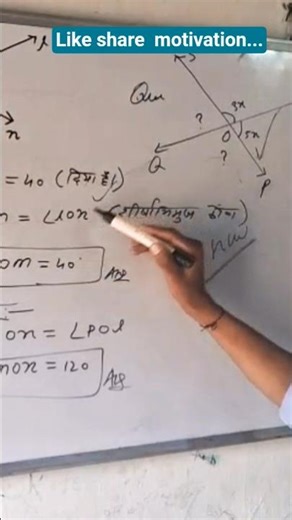 Like share motivation...
Que
3x
?
O
5x
Q
?
P
n
= 40 (दिया है)
m = ∠lon (शीर्षाभिमुख कोण)
HW
om = 40° Ans
on = ∠POl
mon = 120 Ans